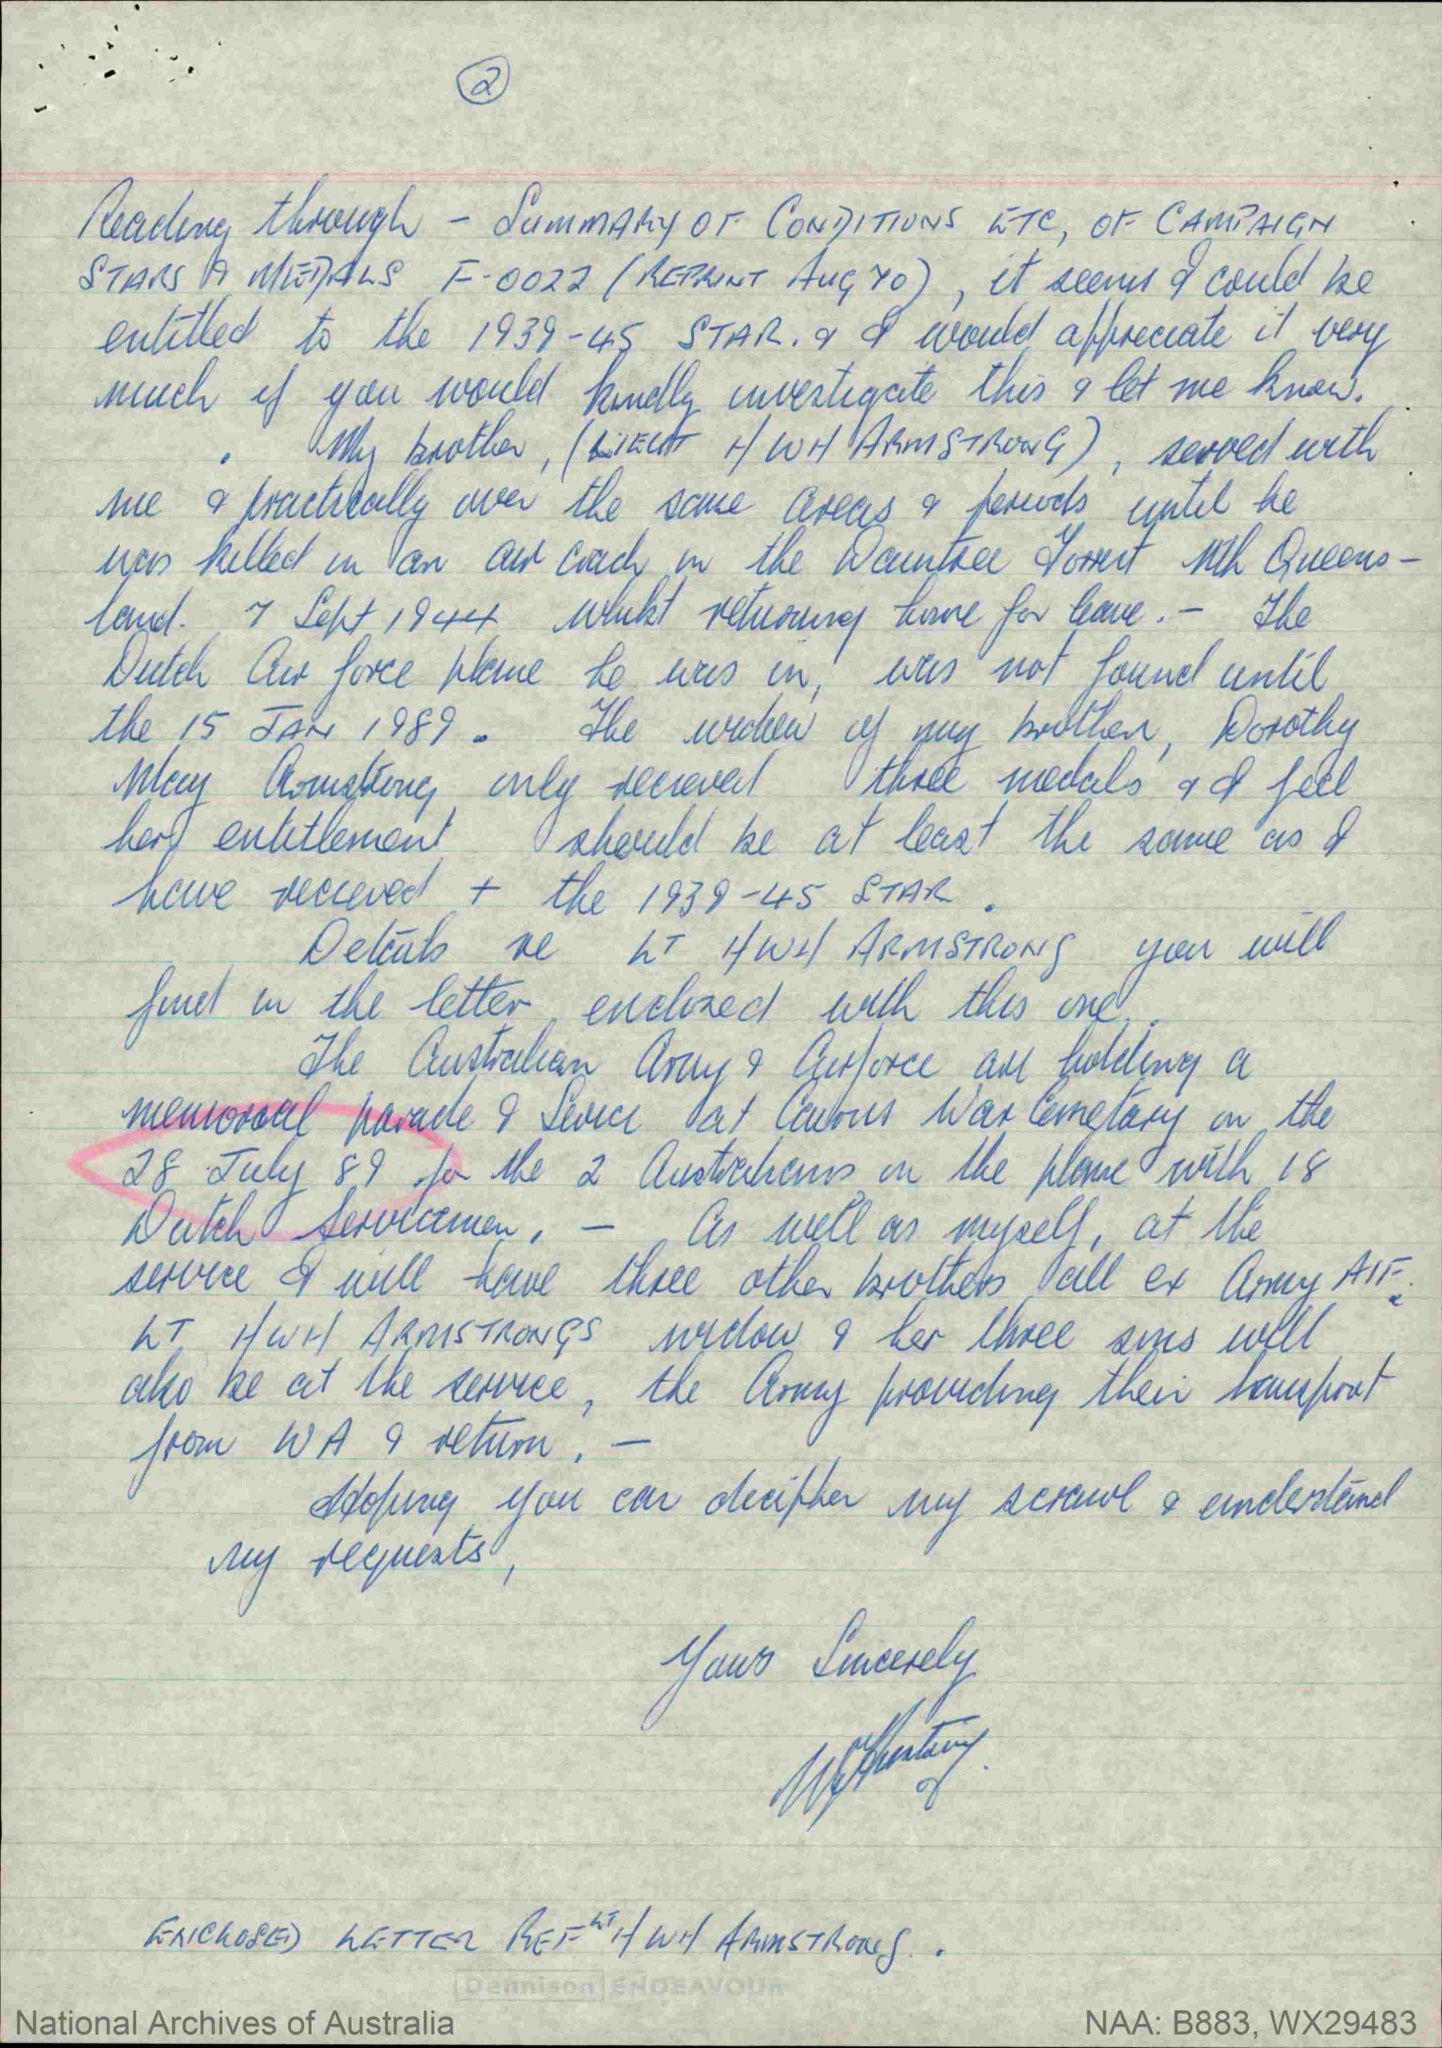 2
Reading through - SUMMARY OF CONDITIONS ETC, OF CAMPAIGN
STARS & MEDALS F-0022 (REPRINT AUG 70), it seems I could be
entitled to the 1939-45 STAR. & I would appreciate it very
much if you would kindly investigate this & let me know.
My brother, (LIEUT H W H ARMSTRONG), served with
me & practically over the same areas & periods until he
was killed in an air crash in the Daintree Forrest Nth Queens-
land. 7 Sept 1944 whilst returning home for leave. - The
Dutch Air force plane he was in, was not found until
the 15 JAN 1989. The widow of my brother, Dorothy
May Armstrong only recieved three medals & I feel
her entitlement should be at least the same as I
have recieved + the 1939-45 STAR.
Details re LT H W H ARMSTRONG you will
find in the letter enclosed with this one.
The Australian Army & Airforce are holding a
memorial parade & Service at Cairns War Cemetary on the
28 July 89 for the 2 Australians on the plane with 18
Dutch Servicemen. - As well as myself, at the
service I will have three other brothers all ex Army AIF.
LT H W H ARMSTRONGS widow & her three sons will
also be at the service, the Army providing their transport
from WA & return. -
Hoping you can decipher my scrawl & understand
my requests,
Yours Sincerely
ENCLOSED LETTER REF LT H W H ARMSTRONG.
Dennison ENDEAVOUR
National Archives of Australia NAA: B883, WX29483